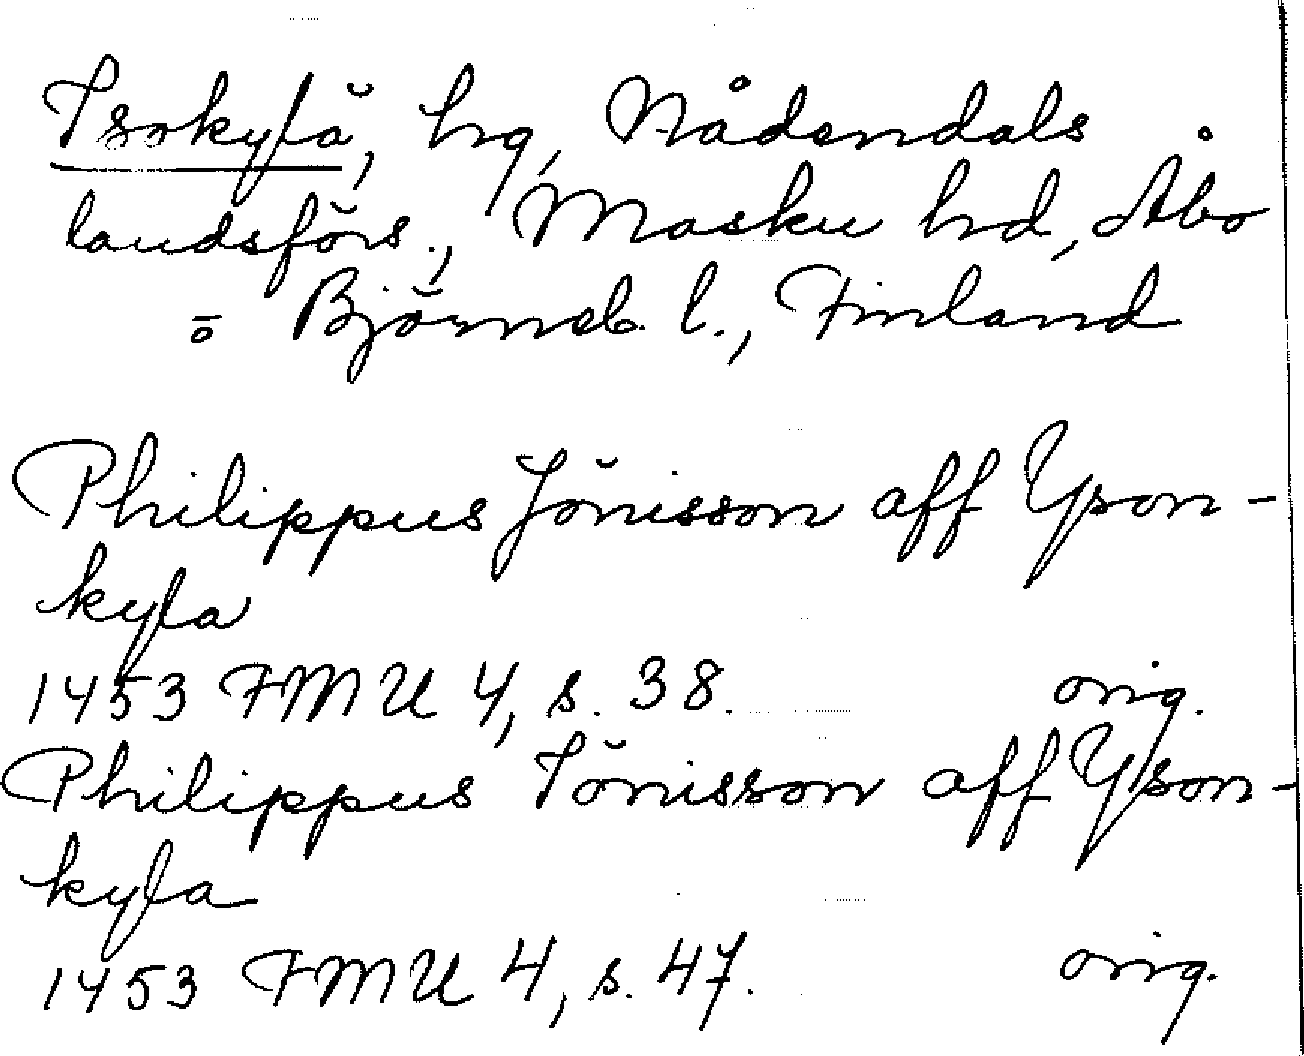 Isokylä, hg, Nådendals
landsförs., Masku hd, Åbo
o Björneb. l., Finland
Philippus Jönisson aff Yson-
kyla
1453 FMU 4, s. 38. orig.
Philippus Tönisson aff Yson-
kyla
1453 FMU 4, s. 47. orig.